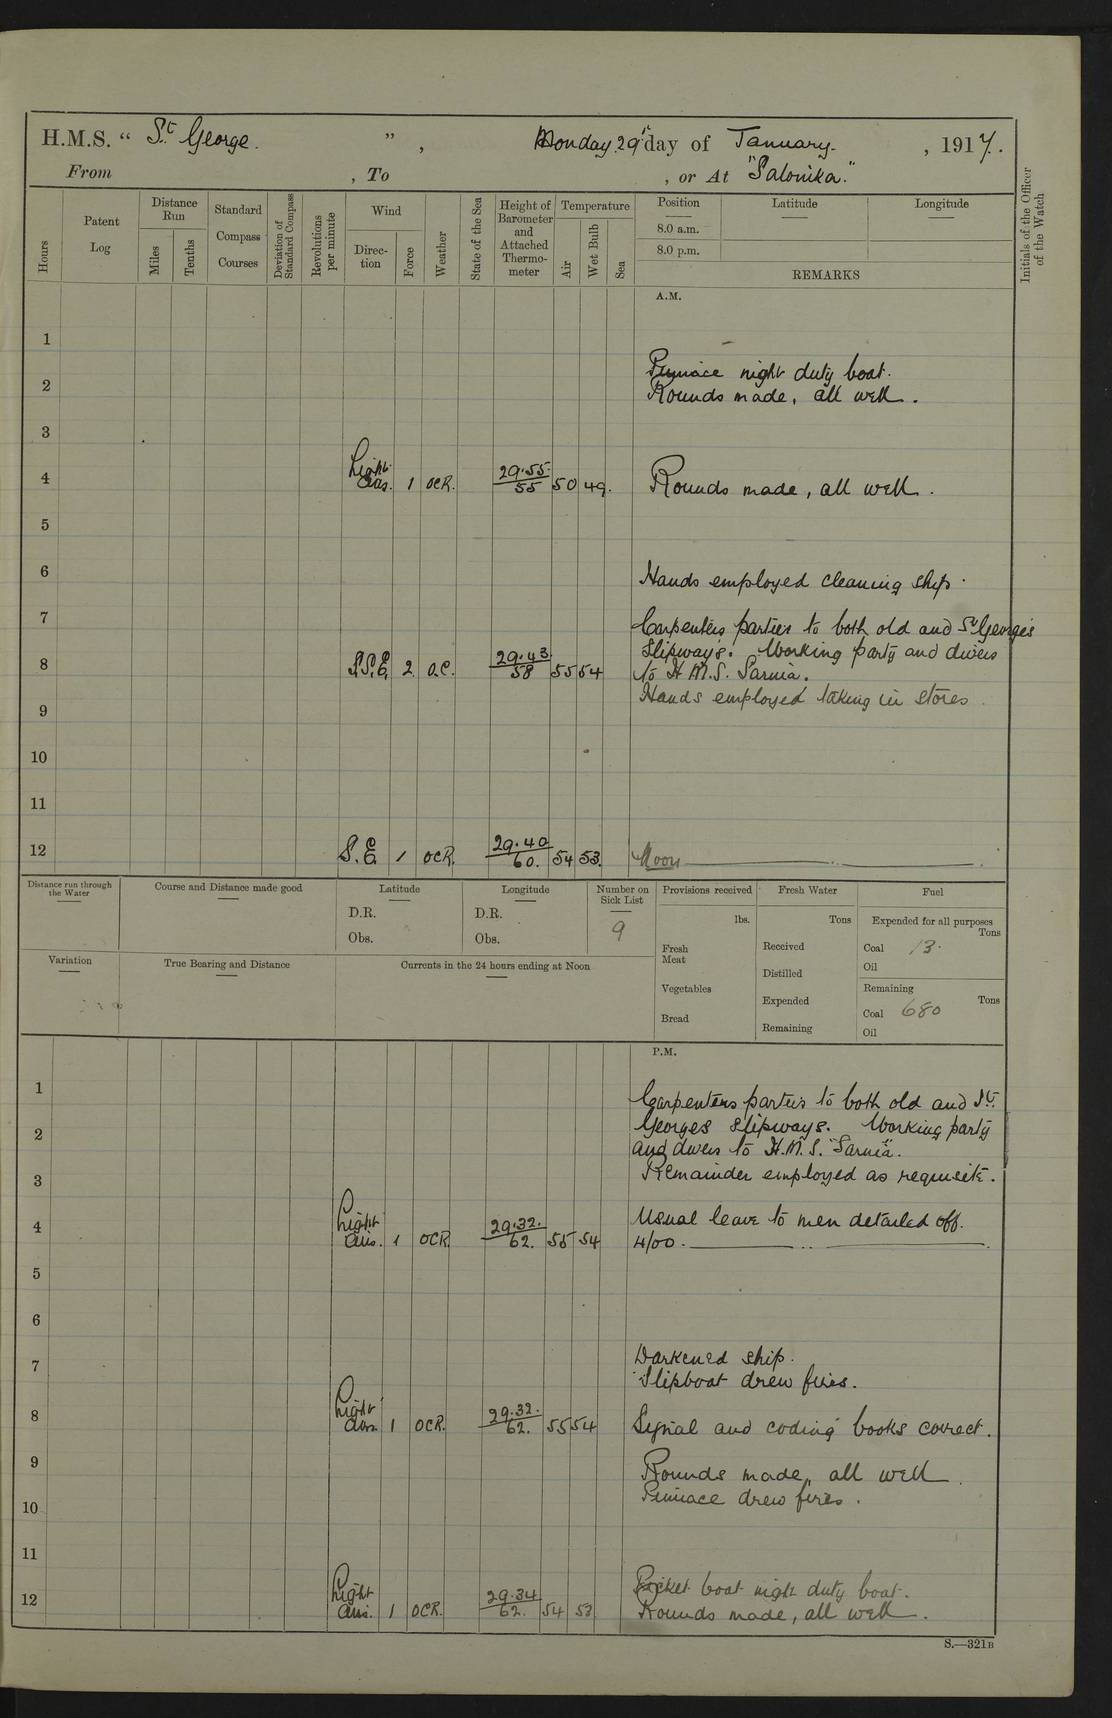 H.M.S. “ St. George. ” , Monday 29th day of January. , 1917.
From , To , or At "Salonika."
Hours
Patent
Log
Distance
Run
Miles
Tenths
Standard
Compass
Courses
Deviation of
Standard Compass
Revolutions
per minute
Wind
Direc-
tion
Force
Weather
State of the Sea
Height of
Barometer
and
Attached
Thermo-
meter
Temperature
Air
Wet Bulb
Sea
Position
8.0 a.m.
8.0 p.m.
Latitude
Longitude
REMARKS
Initials of the Officer
of the Watch
A.M.
1
Pinnace night duty boat.
2
Rounds made, all well.
3
4 Light airs. 1 OCR. 29.55 55 50 49. Rounds made, all well.
5
6 Hands employed cleaning ship.
7 Carpenters parties to both old and St Georges
Slipways. Working party and divers
8 S.S.E. 2 O.C. 29.43 58 55 54 to H.M.S. Sarnia.
Hands employed taking in stores.
9
10
11
12 S.E. 1 OCR. 29.40 60. 54 53. Noon
Distance run through
the Water
Course and Distance made good
Latitude
D.R.
Obs.
Longitude
D.R.
Obs.
Number on
Sick List
9
Provisions received
lbs.
Fresh
Meat
Vegetables
Bread
Fresh Water
Tons
Received
Distilled
Expended
Remaining
Fuel
Expended for all purposes
Tons
Coal 13.
Oil
Remaining
Tons
Coal 680
Oil
Variation
True Bearing and Distance
Currents in the 24 hours ending at Noon
P.M.
1 Carpenters parties to both old and St.
2 Georges slipways. Working party
and divers to H.M.S. "Sarnia".
3 Remainder employed as requisite.
Usual leave to men detailed off.
4 Light airs. 1 OCR 29.32. 62. 55 54 4/00.
5
6
7 Darkened ship.
Slipboat drew fires.
8 Light airs 1 OCR. 29.32. 62. 55 54 Signal and coding books correct.
9 Rounds made, all well.
10 Pinnace drew fires.
11
Picket boat night duty boat.
12 Light airs. 1 OCR. 29.34 62. 54 53 Rounds made, all well.
S.—321B